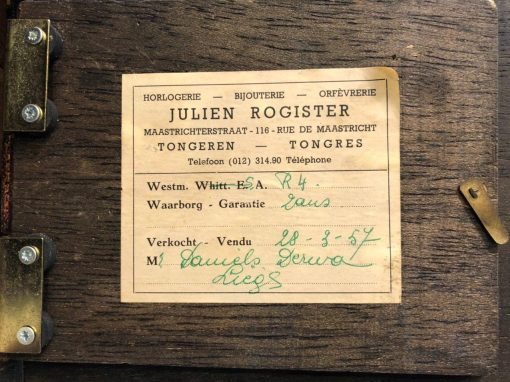 HORLOGERIE — BIJOUTERIE — ORFÈVRERIE
JULIEN ROGISTER
MAASTRICHTERSTRAAT - 116 - RUE DE MAASTRICHT
TONGEREN — TONGRES
Telefoon (012) 314.90 Téléphone
Westm. Whitt. E.S.A. R4.
Waarborg - Garantie 2ans
Verkocht - Vendu 28-3-57
Mr Daniels
Liège